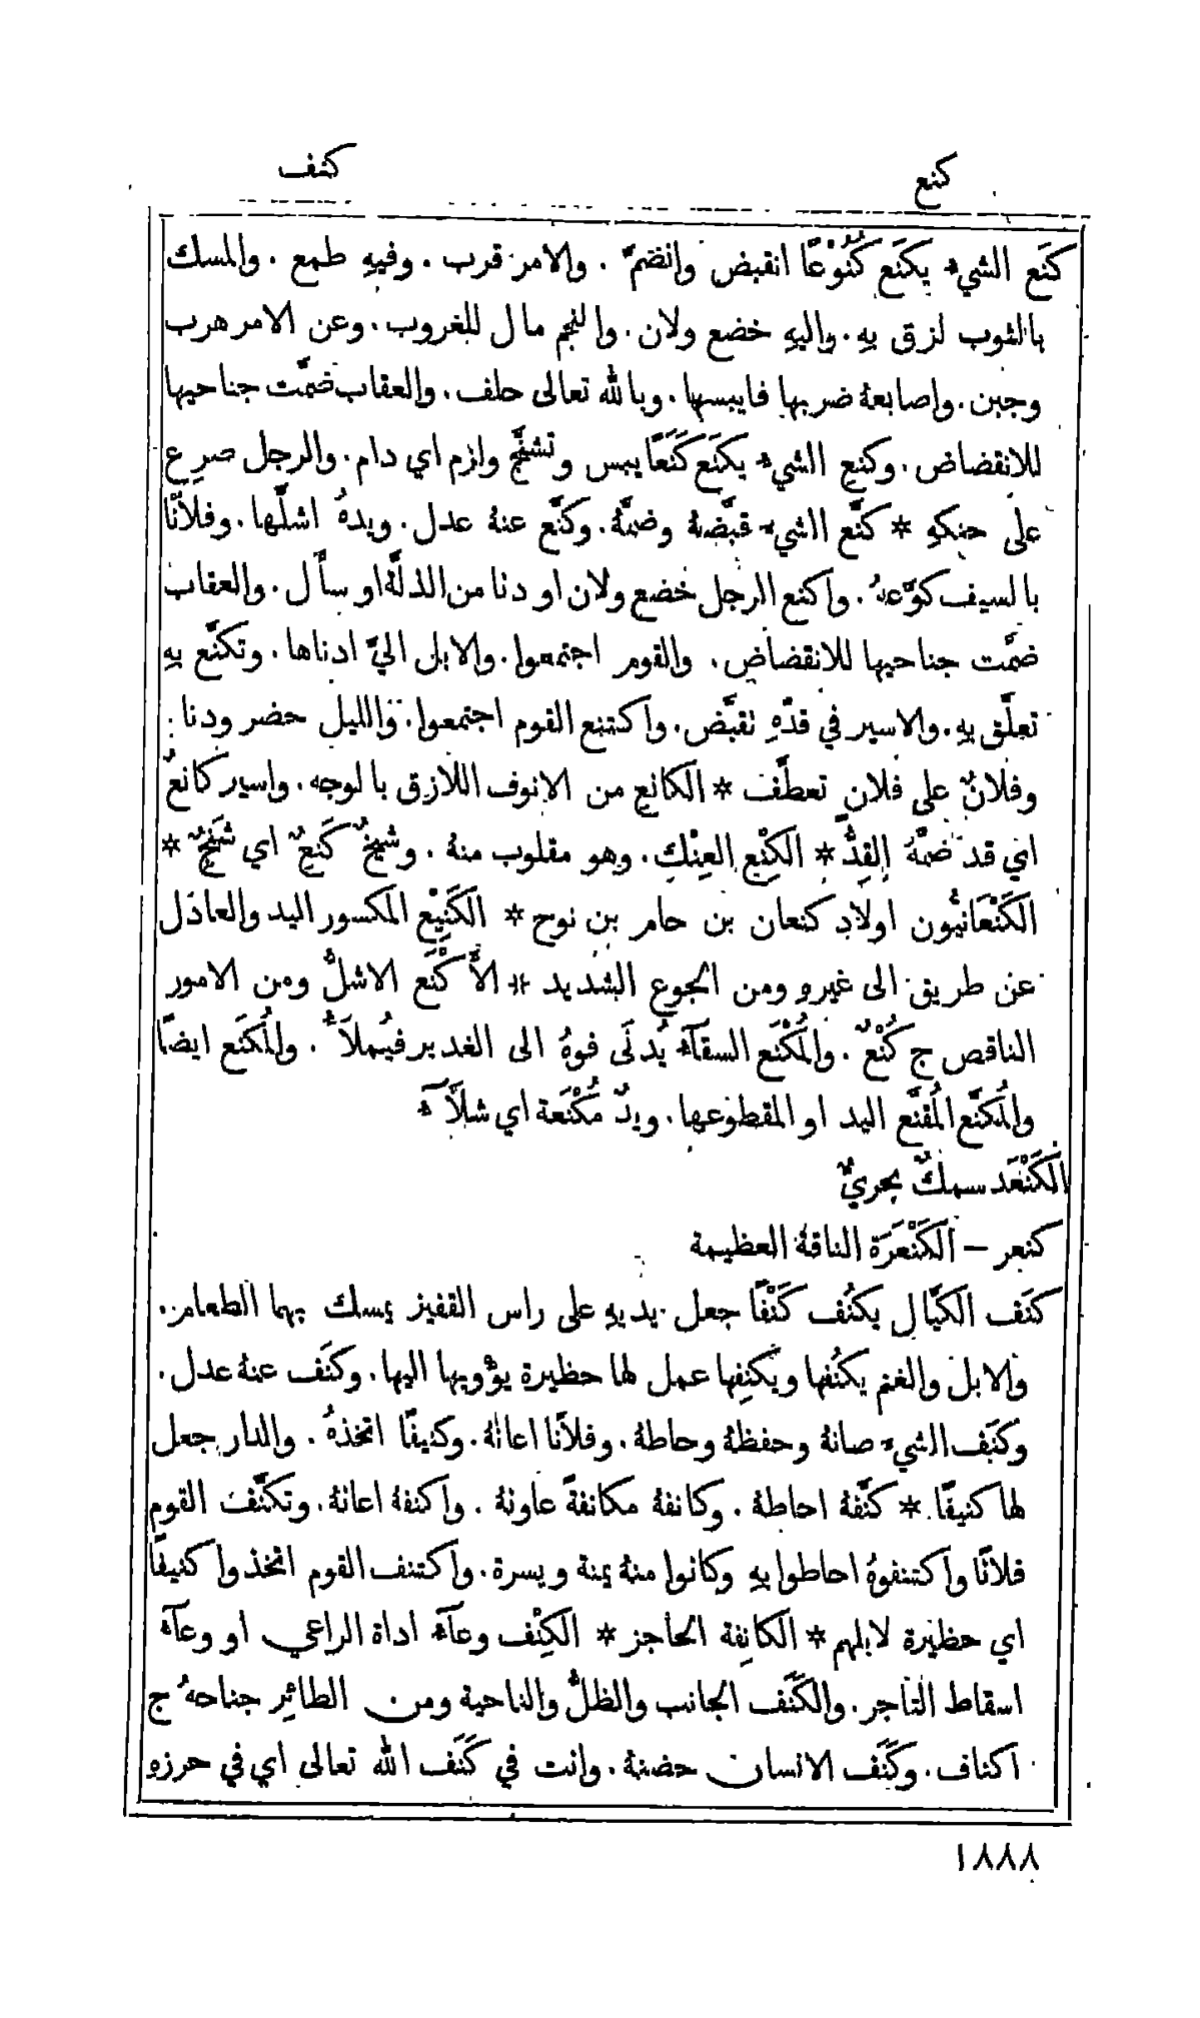 كنع
كنف
كنَع الشيء يكنَع كُنُوْعًا انقبض وانضمّ . والامر قرب . وفيهِ طمع . والمسك
بالثوب لزق بهِ . واليهِ خضع ولان . والنجم مال للغروب . وعن الامر هرب
وجبن . واصابعهُ ضربها فايبسها . وبالله تعالى حلف . والعقاب ضمَّت جناحيها
للانقضاض . وكنِع الشيء يكنَع كَنَعًا يبس وتشنَّج ولزم اي دام . والرجل صرِع
على حنكهِ * كنَّع الشيء قبَّضهُ وضمَّهُ . وكنَّع عنهُ عدل . ويدهُ اشلَّها . وفلانًا
بالسيف كوَّعهُ . واكنع الرجل خضع ولان او دنا من الذلَّة او سأل . والعقاب
ضمَّت جناحيها للانقضاض . والقوم اجتمعوا . والابل اليَّ ادناها . وتكنَّع بهِ
تعلَّق بهِ . والاسير في قدّهِ تقبَّض . واكتنع القوم اجتمعوا . والليل حضر ودنا .
وفلانٌ على فلانٍ تعطَّف * الكانِع من الانوف اللازق بالوجه . واسير كانعٌ
اي قد ضمَّهُ القِدُّ * الكِنْع العِنْك . وهو مقلوب منهُ . وشيخٌ كَنِعٌ اي شَنِجٌ *
الكَنْعَانيُّون اولاد كنعان بن حام بن نوح * الكَنِيْع المكسور اليد والعادل
عن طريق الى غيرهِ ومن الجوع الشديد * الأَكْنَع الاشلُّ ومن الامور
الناقص ج كُنْعٌ . والمُكْنَع السقآء يُدلَى فوهُ الى الغدير فيُملأُ . والمُكنَع ايضًا
والمُكنَّع المُقنَّع اليد او المقطوعها . ويدٌ مُكْنَعة اي شلَّآء
الكَنْعَد سمكٌ بحريٌّ
كنعر — الكَنْعَرَة الناقة العظيمة
كنَف الكيَّال يكنُف كَنْفًا جعل يديهِ على راس القفيز يمسك بهما الطعام .
والابل والغنم يكنُفها ويكنِفها عمل لها حظيرة يؤْويها اليها . وكنَف عنهُ عدل .
وكنَف الشيء صانهُ وحفظهُ وحاطهُ . وفلانًا اعانهُ . وكنيفًا اتخذهُ . والدار جعل
لها كنيفًا * كنَّفهُ احاطهُ . وكانفهُ مكانفةً عاونهُ . واكنفهُ اعانهُ . وتكنَّف القوم
فلانًا واكتنفوهُ احاطوا بهِ وكانوا منهُ يمنة ويسرة . واكتنف القوم اتخذوا كنيفًا
اي حظيرة لابلهم * الكانِفة الحاجز * الكِنْف وعآء اداة الراعي او وعآء
اسقاط التاجر . والكَنَف الجانب والظلُّ والناحية ومن الطائِر جناحهُ ج
اكناف . وكَنَف الانسان حضنهُ . وانت في كَنَف الله تعالى اي في حرزهِ
١٨٨٨